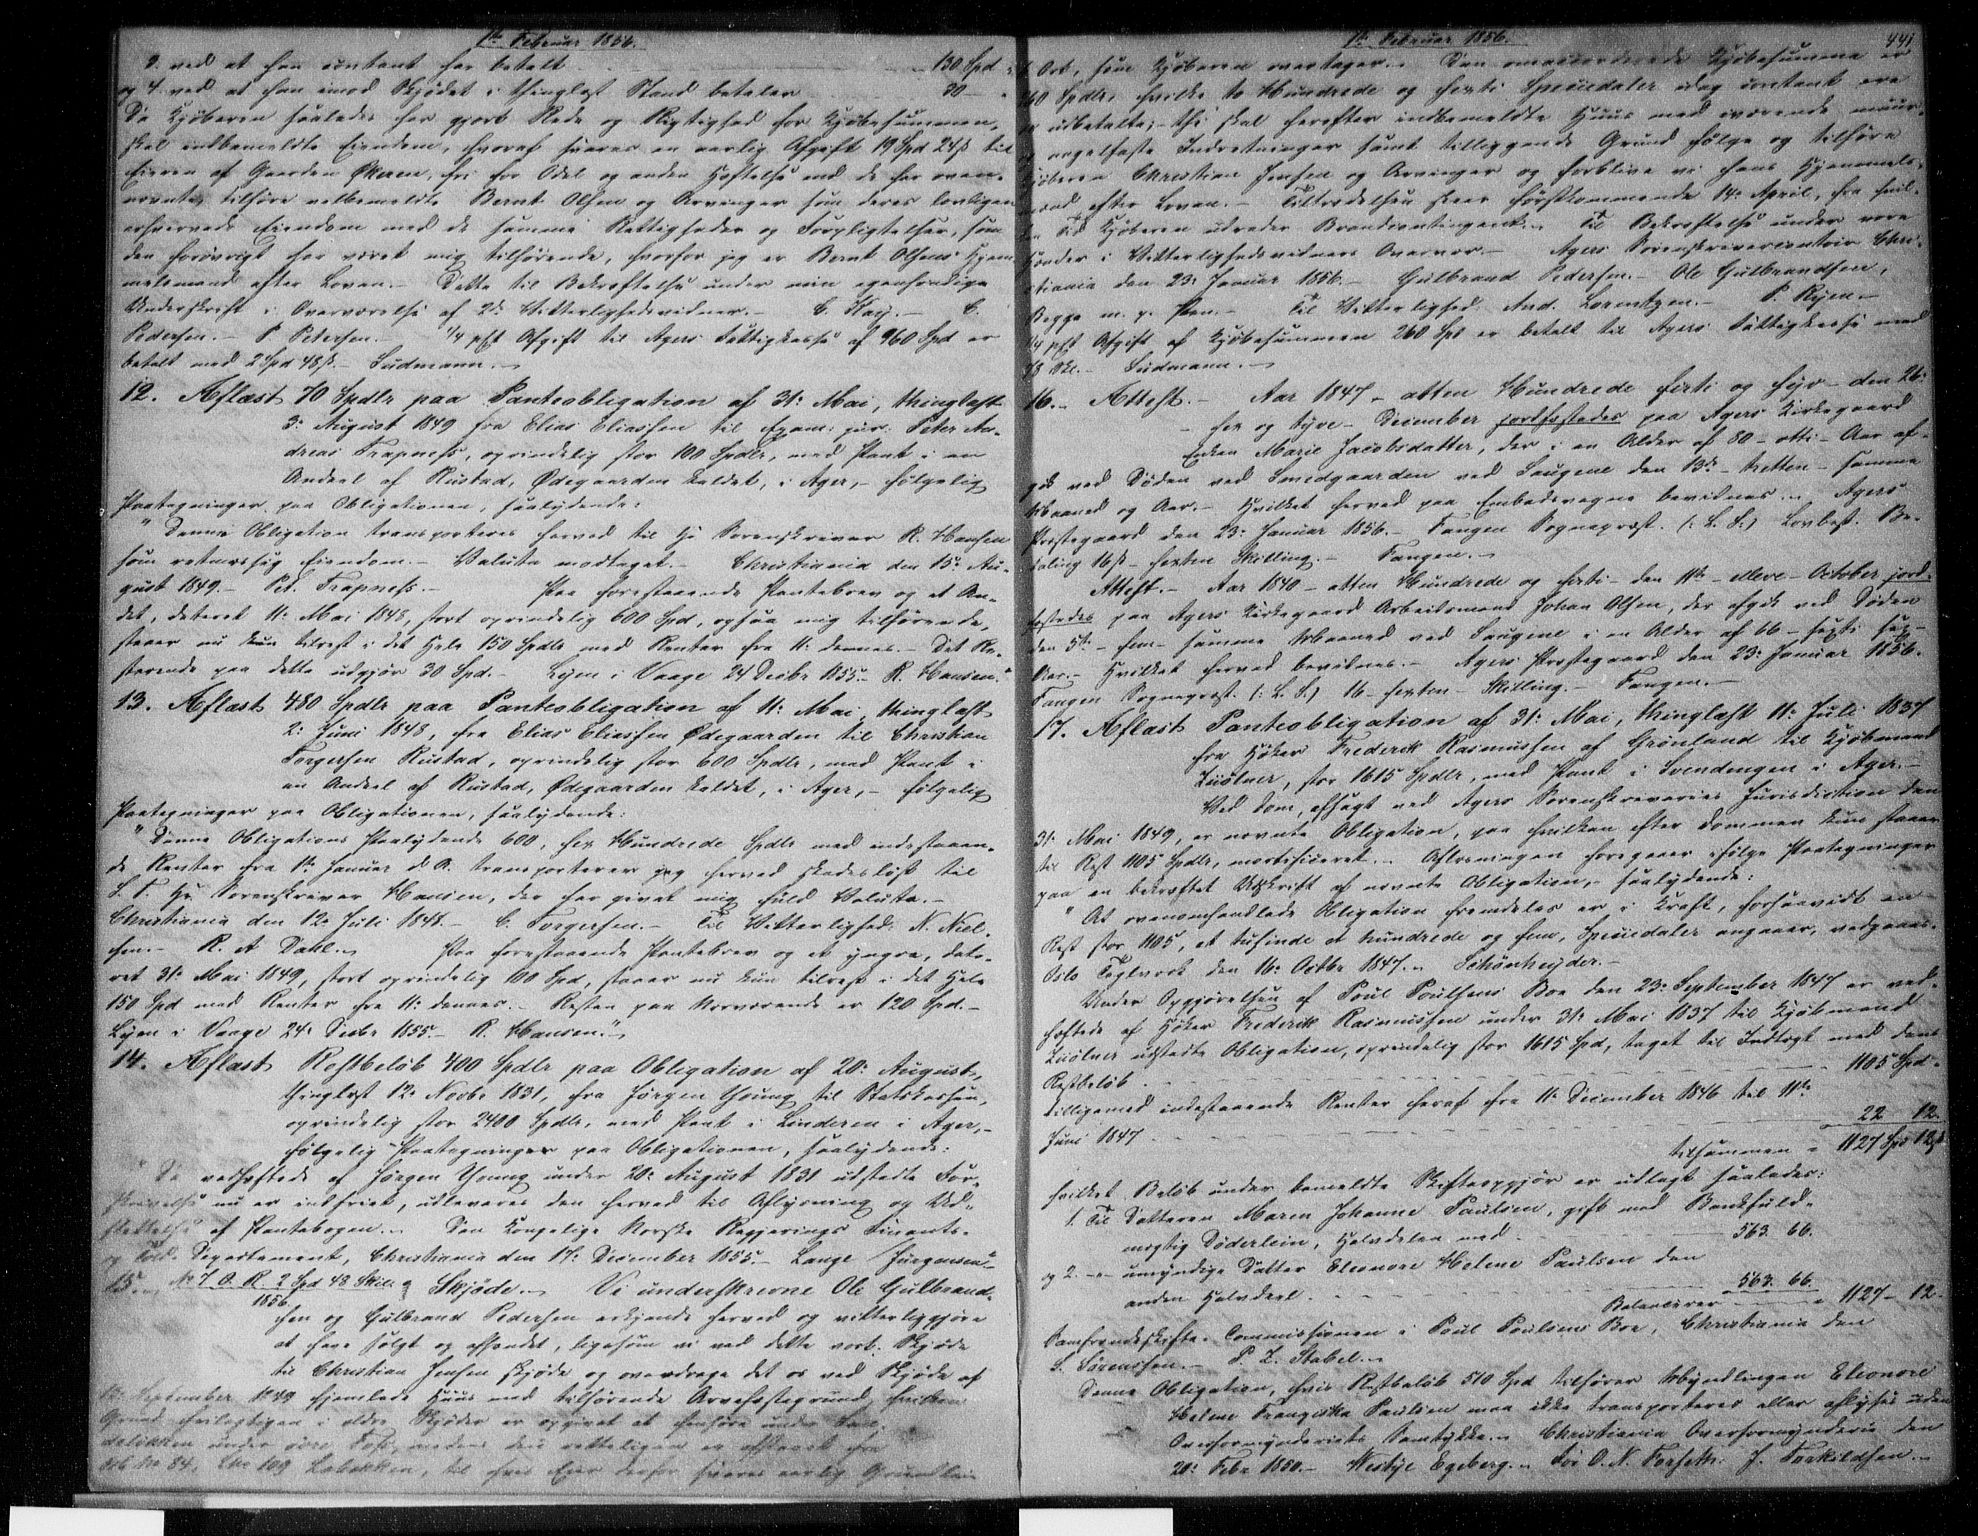 1ste Februar 1856.
3. ved at han contant har betalt 130 Spd
og 4. ved at han imod Skjødet i thinglæst Stand betaler 30
Da Kjøberen saaledes har gjort Rede og Rigtighed for Kjøbesummen,
skal indbemeldte Eiendom, hvoraf svares en aarlig Afgift 19 Spd 24 ß til
Eieren af Gaarden Økern, fri for Odel og anden Heftelse end de her oven-
nævnte, tilhøre velbemeldte Bernt Olsen og Arvinger som deres lovligen
erhvervede Eiendom med de samme Rettigheder og Forpligtelser, som
den forøvrigt har været mig tilhørende, hvorfor jeg er Bernt Olsens Hjem-
melsmand efter Loven.- Dette til Bekræftelse under min egenhændige
Underskrift i Overværelse af 2de Vitterlighedsvidner.- C.
Pedersen.- P Petersen.- 1/4 pCt Afgift til Agers Fattigkasse af 960 Spd er
betalt med 2 Spd 48 ß.- Gudmann.
12. Aflæst 70 Spdlr paa Panteobligation af 31te Mai, thinglæst
3die August 1849 fra Elias Eliassen til Exam: jur: Peter An-
dreas Trapness, oprindelig stor 100 Spdlr, med Pant i en
Andeel af Rustad, Ødegaarden kaldet, i Ager,- følgelig
Paategninger paa Obligationen, saalydende:
"Denne Obligation transporteres herved til Hr Sorenskriver R. Hansen
som retmæssig Eiendom.- Valuta modtaget.- Christiania den 15de Au-
gust 1849.- Pet. Trapness.- Paa forestaaende Pantebrev og et An-
det, dateret 11te Mai 1848, stort oprindelig 600 Spd, ogsaa mig tilhørende,
staaer nu kun tilrest i det Hele 150 Spdlr med Renter fra 11te dennes.- Det Re-
sterende paa dette udgjør 30 Spd.- Lyen i Vaage 24 Decbr 1855.- R. Hansen."
13. Aflæst 480 Spdlr paa Panteobligation af 11te Mai, thinglæst
2den Juni 1848, fra Elias Eliassen Ødegaarden til Christian
Torgersen Rustad, oprindelig stor 600 Spdlr, med Pant i
en Andeel af Rustad, Ødegaarden kaldet, i Ager,- følgelig
Paategninger paa Obligationen, saalydende:
"Denne Obligations Paalydende 600, sex Hundrede Spdlr med indestaaen-
de Renter fra 1ste Januar d. A. transporterer jeg herved skadesløst til
S. T. Hr Sorenskriver Hansen, der har givet mig fuld Valuta.-
Christiania den 12te Juli 1848.- C. Torgersen.- Til Vitterlighed: N. Niel-
sen.- R. A Dahl.- Paa forestaaende Pantebrev og et yngre, date-
ret 31te Mai 1849, stort oprindelig 100 Spd, staaer nu kun tilrest i det Hele
150 Spd med Renter fra 11te dennes.- Resten paa Nærværende er 120 Spd.-
Lyen i Vaage 24de Decbr 1855.- R. Hansen."
14. Aflæst Restbeløb 400 Spdlr paa Obligation af 20de August,
thinglæst 12te Novbr 1831, fra Jørgen Young til Statskassen,
oprindelig stor 2400 Spdlr, med Pant i Linderen i Ager,-
følgelig Paategninger paa Obligationen, saalydende:
"Da vedhæftede af Jørgen Young under 20de August 1831 udstedte For-
skrivelse nu er indfriet, udleveres den herved til Aflysning og Ud-
slettelse af Pantebogen.- Den kongelige Norske Regjerings Finants-
og Told-Departement, Christiania den 17de December 1855.- Lange Jürgensen"
15. No 7. O. R. 2 Spd 48 Skill. Skjøde.- Vi underskrevne Ole Gulbrand-
1856.
sen og Gulbrand Pedersen erkjende herved og vitterliggjøre
at have solgt og afhændet, ligesom vi ved dette vort Skjøde
til Christian Jensen skjøde og overdrage det os ved Skjøde af
September 1849 hjemlede Huus med tilhørende Arvefæstegrund, hvilken
Grund feilagtigen i ældre Skjøder er opgivet at henhøre under
løkken under øvre Foss, medens den rettelig er afstaaet fra
No 84, Lno 109 Labakken, til hvis Eier derfor svares aarlig Grundleie
1ste Februar 1856.
441
Ort, som Kjøberen overtager.- Den omaccorderede Kjøbesumma er
260 Spdlr, hvilke to Hundrede og sexti Speciedaler idag contant ere
os udbetalte,- thi skal herefter indbemeldte Huus med iværende muur-
og nagelfaste Indretninger samt tilliggende Grund følge og tilhøre
Kjøberen Christian Jensen og Arvinger og forblive vi hans Hjemmels-
mænd efter Loven.- Tiltrædelsen skeer førstkommende 14de April, fra hvil-
den Tid Kjøberen udreder Brandcontingent.- Til Bekræftelse under vore
Hænder i Vitterlighedsvidners Overvær.- Agers Sorenskrivercontoir Chri-
stiania den 23de Januar 1856.- Gulbrand Pedersen.- Ole Gulbrandsen,
Begge m. p. Pen.- Til Vitterlighed: And. Lorentzen.- P. Ryen.-
1/4 pCt Afgift af Kjøbesummen 260 Spd er betalt til Agers Fattigkasse med
78 Skl.- Gudmann.-
16. Attest.- Aar 1847 - atten Hundrede firti og syv - den 26de
- sex og tyve - December jordfæstedes paa Agers Kirkegaard
Enken Marie Jacobsdatter, der i en Alder af 80 - otti - Aar af-
gik ved Døden ved Smedgaarden ved Saugene den 13de - tretten - samme
Maaned og Aar.- Hvilket herved paa Embedsvegne bevidnes.- Agers
Præstegaard den 23de Januar 1856.- Fangen Sognepræst. (: L. S.:) Lovbest. Be-
taling 16 ß - sexten Skilling.- Fangen.-
Attest.- Aar 1840 - atten Hundrede og firti - den 11te - elleve - October jord-
fæstedes paa Agers Kirkegaard Arbeidsmand Johan Olsen, der afgik ved Døden
den 5te - fem - samme Maaned ved Saugene i en Alder af 66 - sexti sex -
Aar.- Hvilket herved bevidnes.- Agers Præstegaard den 23de Januar 1856.
Fangen Sognepræst. (: L. S.:) 16 - sexten - Skilling.- Fangen.-
17. Aflæst Panteobligation af 31te Mai, thinglæst 11te Juli 1837
fra Høker Frederik Rasmussen af Grønland til Kjøbmand
Zuølner, stor 1615 Spdlr, med Pant i Svendengen i Ager.-
Ved Dom, afsagt ved Agers Sorenskriveries Jurisdiction den
31te Mai 1849, er nævnte Obligation, paa hvilken efter Dommen kun staaer
til Rest 1105 Spdlr, mortificeret.- Aflæsningen foregaaer ifølge Paategninger
paa en bekræftet Udskrift af nævnte Obligation,- saalydende:
"At ovenomhandlede Obligation fremdeles er i Kraft, forsaavidt en
Rest stor 1105, et tusinde et hundrede og fem, Speciedaler angaaer, vedgaaes.
Oslo Teglværk den 16de Octbr 1847.- Schönheyder.-
Under Opgjørelsen af Poul Poulsens Boe den 23de September 1847 er ved-
hæftede af Høker Frederik Rasmussen under 31te Mai 1837 til Kjøbmand
Zuølner udstedte Obligation, oprindelig stor 1615 Spd, taget til Indtægt med dens
Restbeløb 1105 Spd
tilligemed indestaaende Renter heraf fra 11te December 1846 til 11te
Juni 1847 22 12
tilsammen 1127 Spd 12 ß
hvilket Beløb under bemeldte Skifteopgjør er udlagt saaledes:
1. Til Datteren Maren Johanne Paulsen, gift med Bankfuld-
mægtig Döderlein, Halvdelen med 563. 66.
og 2. -"- umyndige Datter Eleonore Helene Paulsen den
anden Halvdeel 563. 66.
Balancerer 1127 - 12
Samfrændeskifte-Commissionen i Poul Poulsens Boe, Christiania den
S. Sørenssen.- P. L. Stabel.-
Denne Obligation, hvis Restbeløb 510 Spd tilhører Myndlingen Eleonore
Helene Franziska Paulsen maa ikke transporteres eller aflyses uden
Overformynderiets Samtykke.- Christiania Overformynderie den
20de Febr 1850.- Westye Egeberg.- For O. N. Forseth: J. Torkildsen.-